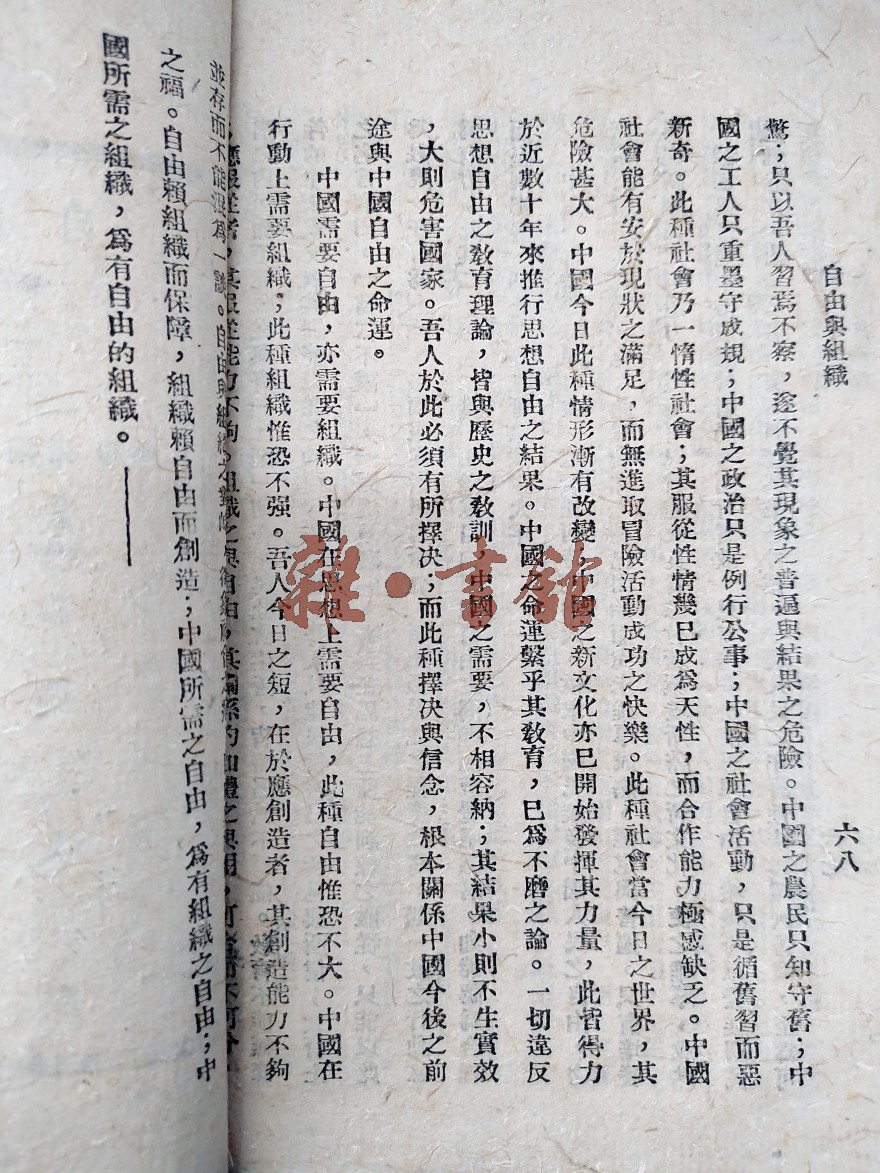 自由與組織
六八
驚；只以吾人習焉不察，遂不覺其現象之普遍與結果之危險。中國之農民只知守舊；中
國之工人只重墨守成規；中國之政治只是例行公事；中國之社會活動，只是循舊習而惡
新奇。此種社會乃一惰性社會；其服從性情幾已成爲天性，而合作能力極感缺乏。中國
社會能有安於現狀之滿足，而無進取冒險活動成功之快樂。此種社會當今日之世界，其
危險甚大。中國今日此種情形漸有改變；中國之新文化亦已開始發揮其力量，此皆得力
於近數十年來推行思想自由之結果。中國之命運繫乎其敎育，已爲不磨之論。一切違反
思想自由之敎育理論，皆與歷史之敎訓，中國之需要，不相容納；其結果小則不生實效
，大則危害國家。吾人於此必須有所擇决；而此種擇决與信念，根本關係中國今後之前
途與中國自由之命運。
中國需要自由，亦需要組織。中國在思想上需要自由，此種自由惟恐不大。中國在
行動上需要組織；此種組織惟恐不强。吾人今日之短，在於應創造者，其創造能力不夠
；應服從者，其服從能力不夠。組織之與自由，其關係乃如體之與用，可
並存而不能混爲一談。自由與組織之
之福。自由賴組織而保障，組織賴自由而創造；中國所需之自由，爲有組織之自由；中
國所需之組織，爲有自由的組織。
雜·書館